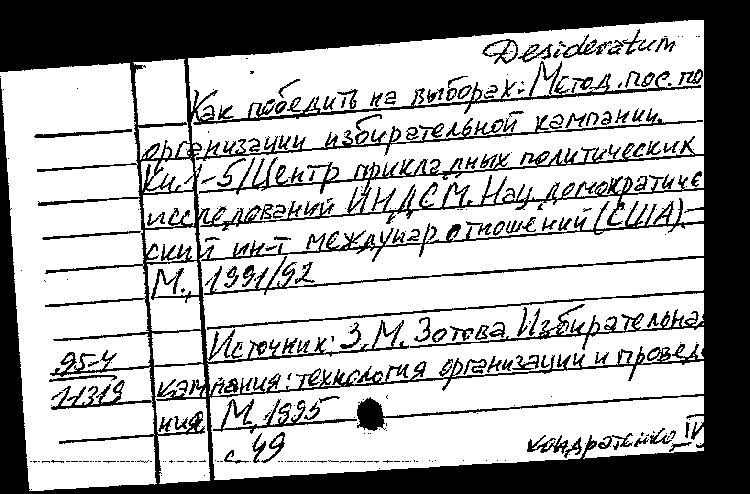 Desideratum
Как победить на выборах: Метод. пос. по
организации избирательной кампании.
Кн. 1-5/Центр прикладных политических
исследований ИНДЕМ. Нац. демократиче
ский ин-т междунар. отношений (США).-
М., 1991/92
Источник: З.М. Зотова. Избирательная
95-4 кампания: технология организации и проведе
ния. М., 1995
с. 49
Кондратенко, IV